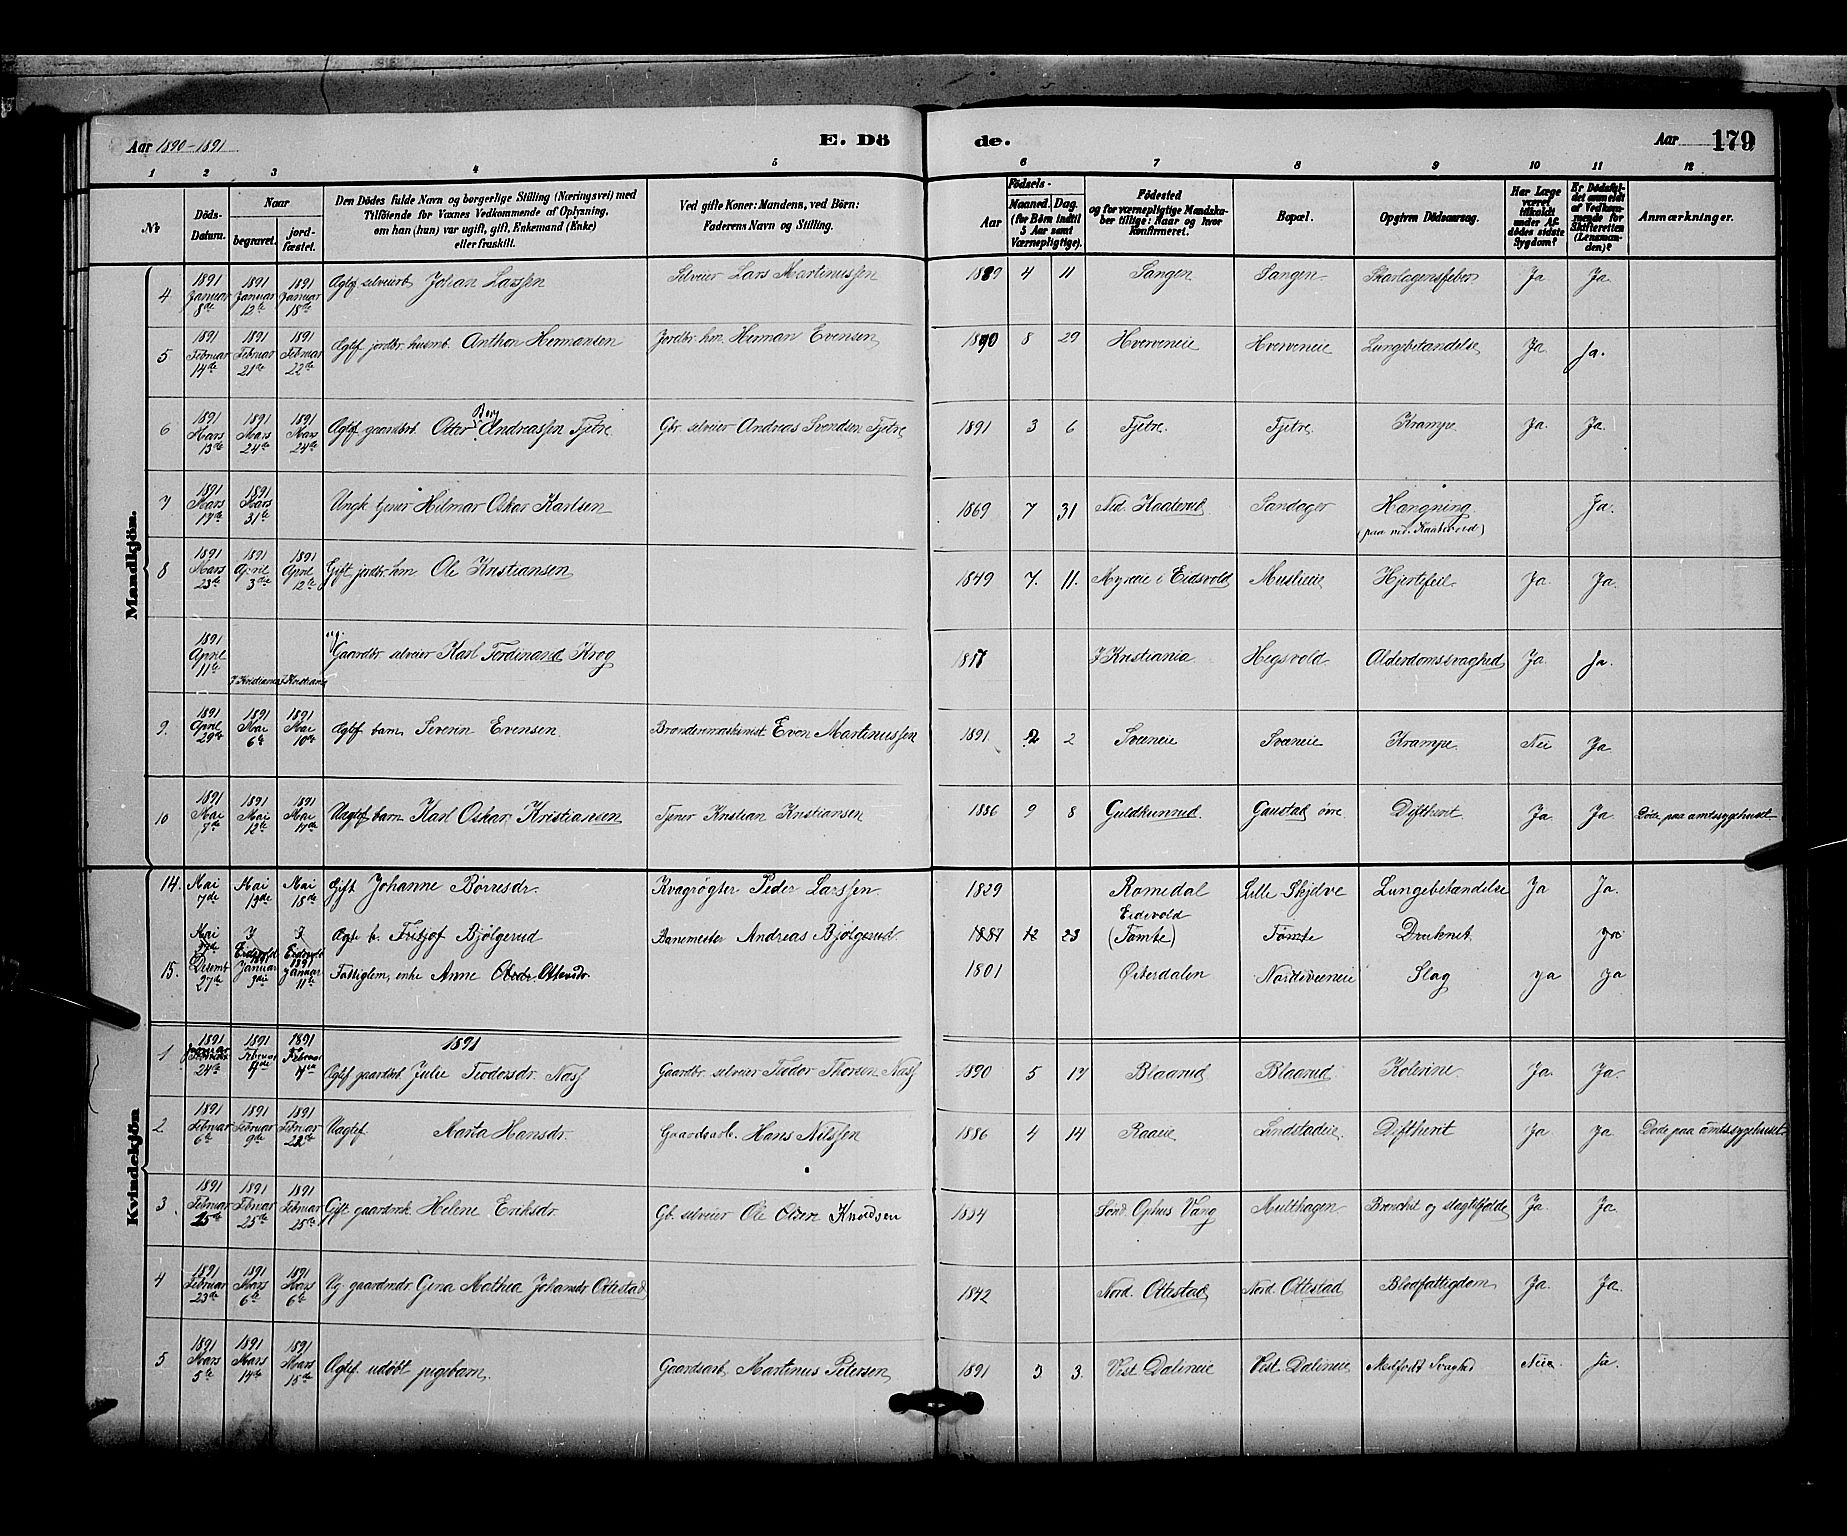 Aar 1890-1891
E. Dö
de.
Aar
179
1 2 3 4 5 6 7 8 9 10 11 12
№
Döds-Datum.
Naar
begravet.
jord-fæstet.
Den Dödes fulde Navn og borgerlige Stilling (Næringsvei) med
Tilföiende for Voxnes Vedkommende af Oplysning,
om han (hun) var ugift, gift, Enkemand (Enke)
eller fraskilt.
Ved gifte Koner: Mandens, ved Börn:
Faderens Navn og Stilling.
Födsels-
Aar
Maaned. Dag.
(for Börn indtil
5 Aar samt
Værnepligtige).
Födested
og for værnepligtige Mandska-
ber tillige: Naar og hvor
Konfirmeret.
Bopæl.
Opgiven Dödsaarsag.
Har Læge
været
tilkaldt
under Af-
dödes sidste
Sygdom?
Er Dödsfal-
det anmeldt
af Vedkom-
mende for
Skifteretten
(Lensman-
den)?
Anmærkninger.
Mandkjön.
4 1891 Januar 8de 1891 Januar 12te 1891 Januar 18de Ægtef selveierb Johan Larssen Selveier Lars Martinussen 1889 4 11 Sangen Sangen Skarlagensfeber Ja Ja
5 1891 Februar 14de 1891 Februar 21de 1891 Februar 22de Ægtef jordbr. husmb. Anthon Hermansen Jordbr. hm. Herman Evensen 1890 8 29 Hverveneie Hverveneie Lungebetændelse Ja Ja.
6 1891 Mars 13de 1891 Mars 24de 1891 Mars 24de Ægtef gaardbrb. Otter Berg Andreassen Tjetre Gbr. selveier Andreas Svendsen Tjetre 1891 3 6 Tjetre Tjetre Krampe Ja Ja.
7 1891 Mars 17de 1891 Mars 31te Ungk tjener Hilmar Oskar Karlsen 1869 7 31 Ned. Kaaterud Sandager Hængning (paa ned. Kaaterud) Ja.
8 1891 Mars 23de 1891 April 3die 1891 April 12te Gift jordbr hm Ole Kristiansen 1849 7. 11. Myreie i Eidsvold Muslieie Hjertefeil Ja Ja.
1891 April 11te I Kristiania I Kristiania ug. Gaardbr selveier Karl Ferdinand Krog 1817 I Kristiania Hegsvold Alderdomssvaghed Ja Ja.
9. 1891 April 29de 1891 Mai 6te 1891 Mai 10de Ægtef barn Severin Evensen. Brændermaskinist Even Martinussen 1891. 2 2 Svæneie Svæneie Krampe Nei Ja
10 1891 Mai 7de 1891 Mai 12te 1891 Mai 17de Uægtef barn Karl Oskar Kristiansen Tjener Kristian Kristiansen 1886 9 8 Guldkunrud. Gaustad øvre. Diftherit Ja. Ja. Døde paa amtssygehuset
14. Mai 7de Mai 13de Mai 18de Gift Johanne Børresdr. Kvægrøgter Peder Larssen. 1829 Romedal Lille Skjelve Lungebetændelse Ja Ja.
Mai I Eidsvold I Eidsvold Ægte b. Fritjof Bjølgerud Banemester Andreas Bjølgerud 1887 12 23 Eidsvold (Tømte) Tømte Druknet ya
15. Decemb 27de 1891 Januar 3die 1891 Januar 11te Fattiglem, enke Anne Ottersdr. 1801 Østerdalen Nordsveeneie Slag ya ya
Kvindekjön
1891
1 1891 Januar 24de 1891 Februar 1891 Februar Ægtef gaardbrb. Julie Teodorsdr. Næss Gaardbr. selveier Teodor Thorsen Næss 1890 5 17 Blaarud Blaarud Kolerine. Ja Ja.
2. 1891 Februar 6te 1891 Februar 9de 1891 Februar 22de Uægtef Marta Hansdr. Gaardsarb. Hans Nilssen 1886 4 14 Raaeie Lundstadeie. Diftherit Ja Ja Døde paa amtssygehuset
3 1891 Februar 15de 1891 Februar 25de 1891 Februar 25de Gift gaardmk. Helene Eriksdr. Gb. selveier Ole Olsen Knudsen 1834 Sønd. Ophus Vang Multhagen Bronchit og slagtilfælde Ja. Ja.
4 1891 Februar 23de 1891 Mars 6te 1891 Mars 6te Ug. gaardmdr. Gina Mathea Johansdr Ottestad 1842 Nord. Ottestad Nord. Ottestad Blodfattigdom Ja. Ja.
5 1891 Mars 5te 1891 Mars 14de 1891 Mars 15de Ægtef. udøbt pigebarn. Gaardsarb. Martinus Petersen 1891 3 3. Vest. Dalineie Vest. Dalineie Medfødt Svaghed Neie Ja.